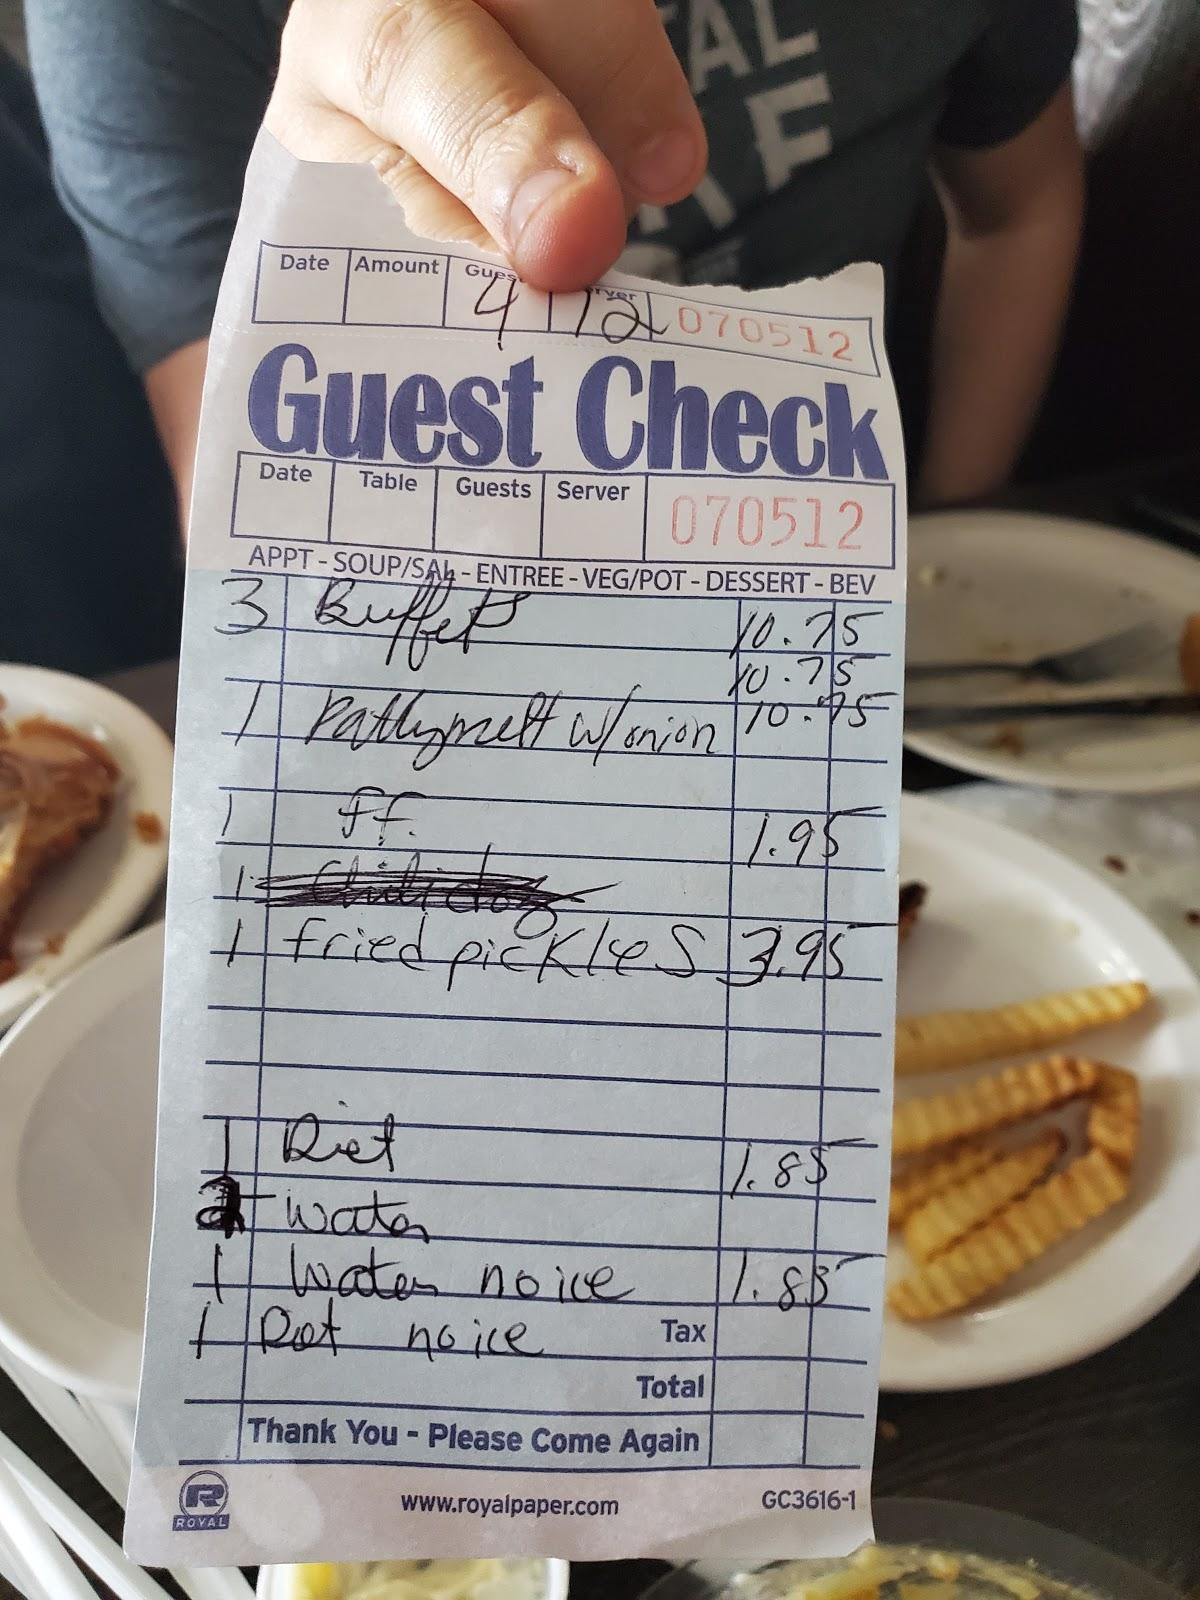 TAL
Date Amount Guest Server
4 12 070512
Guest Check
Date Table Guests Server 070512
APPT - SOUP/SAL - ENTREE - VEG/POT - DESSERT - BEV
3 Buffets 10.75
10.75
1 Pattymelt w/onion 10.75
1 ff. 1.95
1 Chili dog
1 fried pickles 3.95
1 Diet 1.85
water
1 water no ice 1.85
1 Diet no ice Tax
Total
Thank You - Please Come Again
R ROYAL www.royalpaper.com GC3616-1